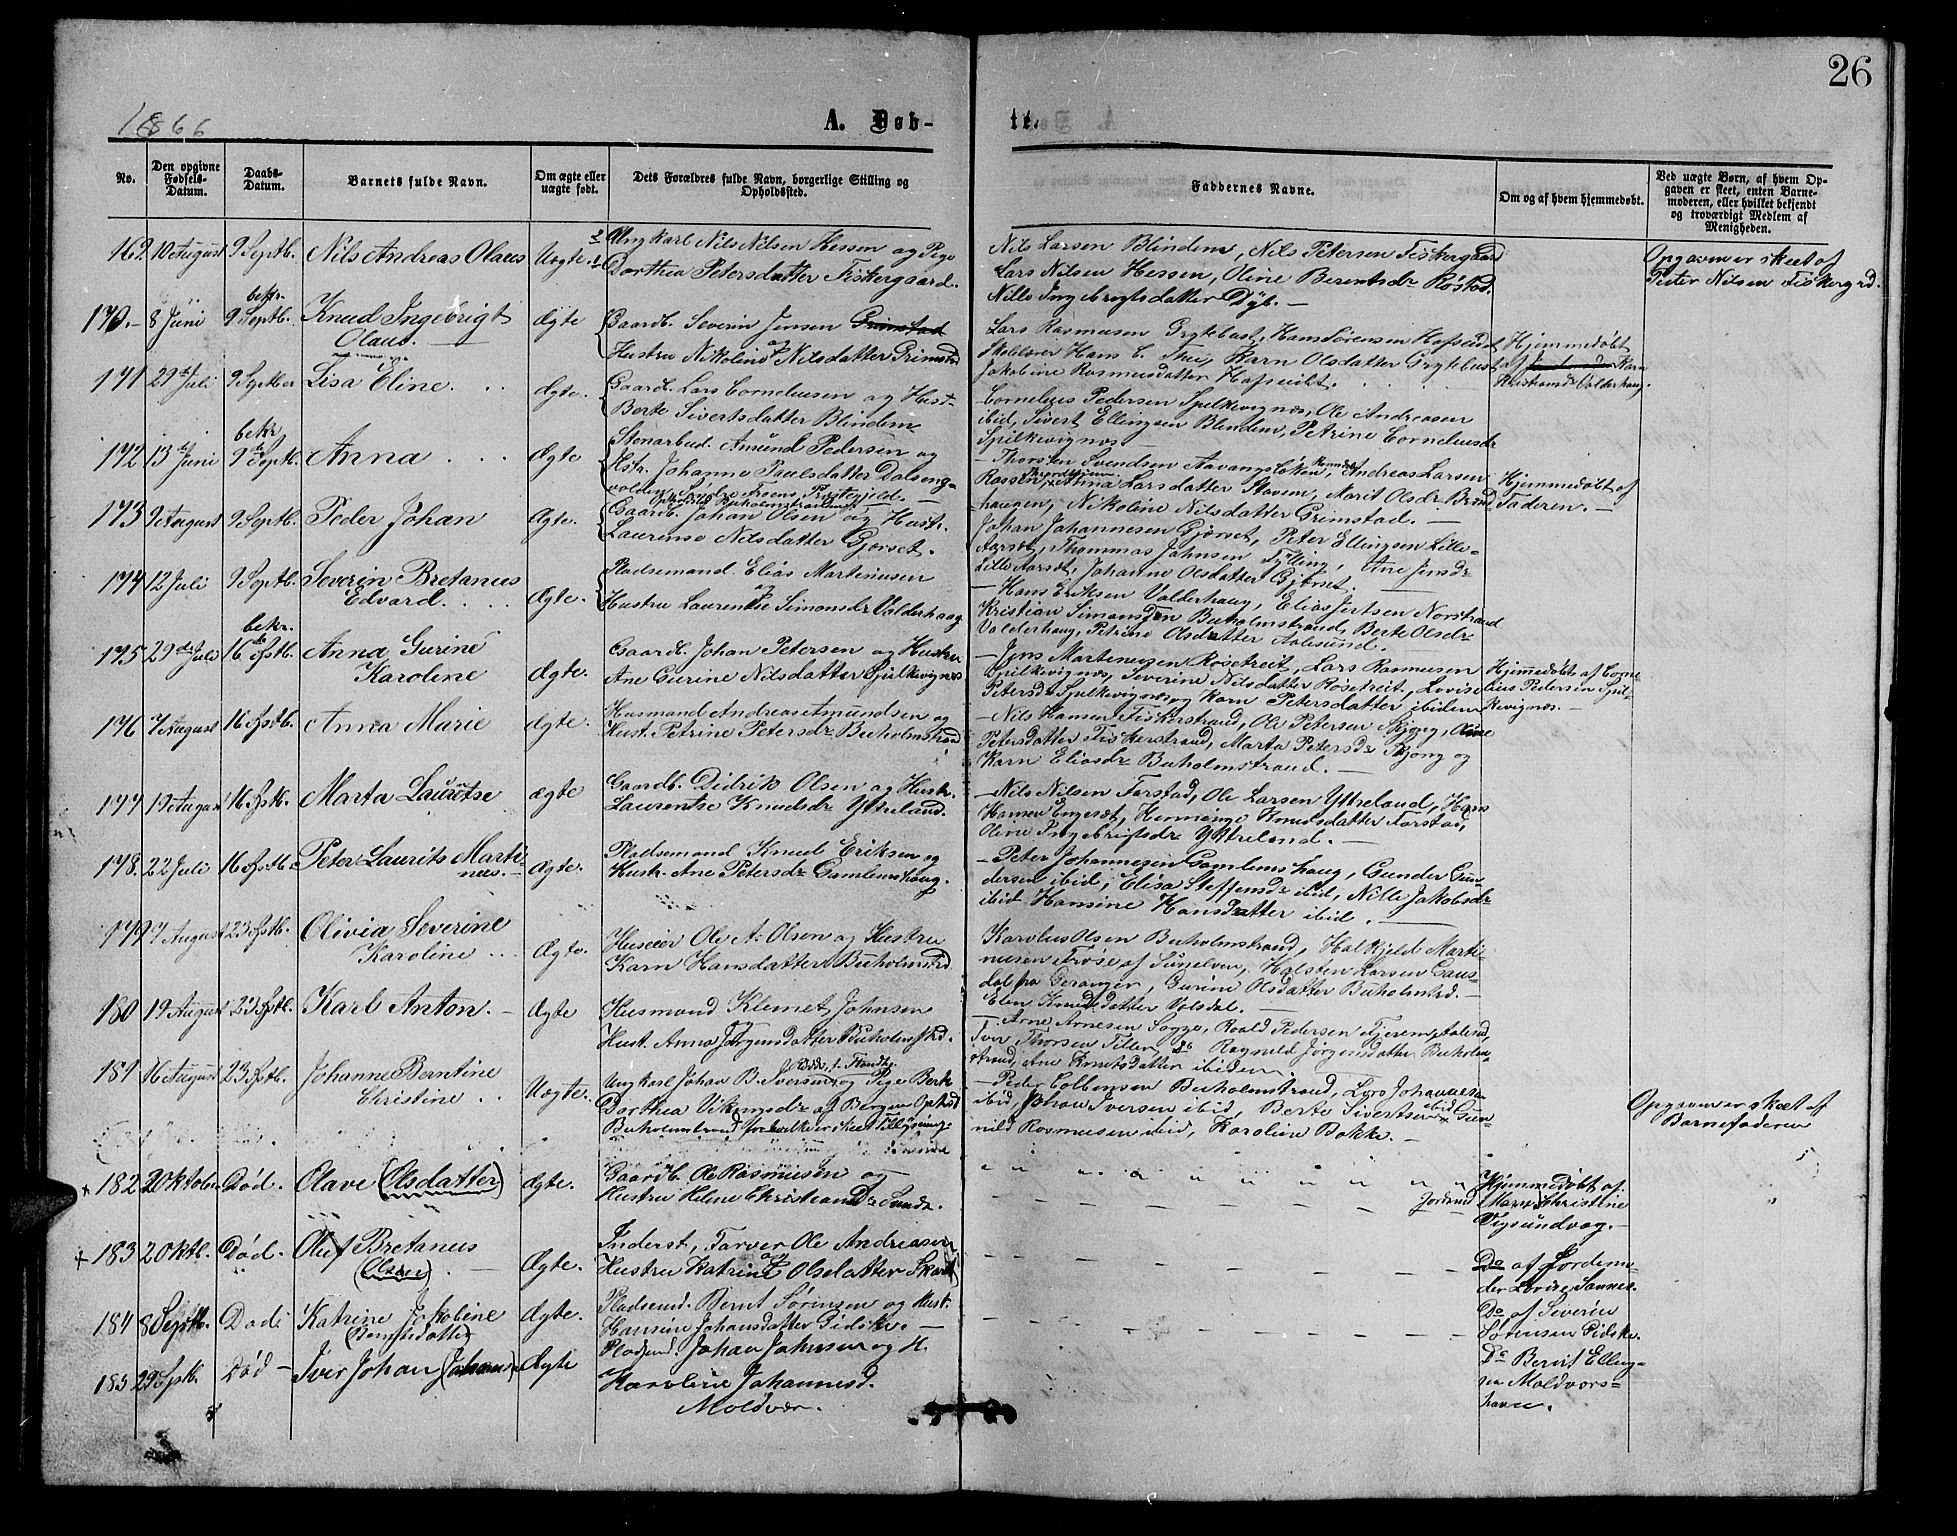 26
1866
A. Døb-
te.
No.
Den opgivne
Fødsels-
Datum.
Daabs-
Datum.
Barnets fulde Navn.
Om ægte eller
uægte født.
Dets Forældres fulde Navn, borgerlige Stilling og
Opholdssted.
Faddernes Navne.
Om og af hvem hjemmedøbt.
Ved uægte Børn, af hvem Op-
gaven er skeet, enten Barne-
moderen, eller hvilket bekjendt
og troværdigt Medlem af
Menigheden.
169. 10 August 9 Septb. Nils Andreas Olaus Uægte.
Ungkarl Nils Nilsen Hessen og Pige
Dorthea Petersdatter Fiskergaard.
Nils Larsen Blindem, Nils Petersen Fiskergaard
Lars Nilsen Hessen, Oline Berentsdr Røstad.
Nille Ingebrigtsdatter Dyb. –
Opgaven er skeet af
Peter Nilsen Fiskergrd.
170. 8 Juni bekr. 9 Septb. Knud Ingebrigt
Olaus. Ægte
Gaardb. Severin Jensen Grimstad
og
Hustru Nikoline Nilsdatter Grimstd
Lars Rasmusen Grytebust, Hans Sørensen Hafsuldt
Skolelærer Hans C. Thue, Karn Olsdatter Grytebust
Jakobine Rasmusdatter Hafsuldt.
Hjemmedøbt
af Karn
Valderhaug.
171 29de Juli 9 Septber Lisa Eline. Ægte.
Gaardb. Lars Corneliusen og Hust.
Berte Sivertsdatter Blindem
Cornelius Pedersen Spilkevignæs, Ole Andreasen
ibid, Sivert Ellingsen Blindem, Petrine Corneliusdr
Spilkevignæs
172 13de Juni bekr. 9de Septb. Anna Ægte
Stenarbeid. Amund Pedersen og
Hstr. Johanne Paulsdatter Dalseng-
Præstegjeld.
– Thorsten Svendsen Andreas Larsen
Larsdatter Stavem, Marit Olsdr
haugen, Nikoline Nilsdatter Grimstad. –
Hjemmedøbt af
Faderen. –
173 9 August 9 Septb. Peder Johan Ægte.
Gaardb. Johan Olsen og Hustr.
Laurense Nilsdatter Gjørset.
Johan Johannesen Gjørset, Peter Ellingsen Lille-
Aarsæt, Thommas Johnsen Fylling, Ane Jensdr
Lille Aarsæt, Johanne Olsdatter Gjørset.
174 12 Juli 9 Septb. Severin Bretanus
Edvard. Ægte.
Pladsemand Elias Martinusen
og
Hustru Laurentse Simonsdr Valderhaug
– Hans Eriksen Valderhaug, Elias Norstrand
Kristian Simonsen Buholmstrand, Berte Olsdr
Valderhaug, Petrine Olsdatter Aalesund. –
175 29de Juli bekr. 16de Sptb. Anna Gurine
Karoline Ægte.
Gaardb. Johan Petersen og Hustru
Ane Gurine Nilsdatter Spilkevignæs
– Jens Martinusen Røsetreit, Lars Rasmusen
Spilkevignæs, Severine Nilsdatter Røsetreit, Lovise
Petersdr Spilkevignæs, og Karn Petersdatter ibidem
Hjemmedøbt af Corne-
lius Pedersen Spil-
kevignæs. –
176 7 August 16 Sptb. Anna Marie Ægte.
Husmand Andreas Amundsen og
Hust. Petrine Petersdr Buholmstrand
– Nils Hansen Fiskerstrand, Ole Petersen Skjong, Oline
Petersdatter Fiskerstrand, Marta Petersdr Skjong og
Karn Eliasdr Buholmstrand. –
177 19 August 16 Sptb. Marta Laurentse ægte
Gaardb. Didrik Olsen og Hustr.
Laurentse Knudsdr Ytreland.
– Nils Nilsen Farstad, Ole Larsen Ytreland, Hans
Hansen Engesæt, Henninge Knudsdatter Farstad,
Oline Ingebrigtsdr Ytreland. –
178. 22 Juli 16 Sptb. Peter Laurits Marti-
nus. – Ægte.
Pladsemand Knud Eriksen og
Hustr. Ane Petersdr Gamlemshaug.
– Peter Johannesen Gamlemshaug, Gunder Gun-
dersen ibid, Elisa Steffensdr ibid, Nille Jakobsdr
ibid Hansine Hansdatter ibid.
179 7 August 23 Sptb. Olivia Severine
Karoline Ægte.
Huseier Ole A. Olsen og Hustru
Karn Hansdatter Buholmstrd
Karolus Olsen Buholmstrand, Halkjeld Marti-
nusen Frøse af Sunelven, Halsten Larsen Gaus-
dal fra Geranger, Gurine Olsdatter Buholmstrd. –
Elen Knudsdatter Volsdal. –
180 19 August 23 Sptb. Karl Anton. – Ægte
Husmand Klemet Johnsen
Hust. Anna Jørgensdatter Buholmstrd.
– Arne Arnesen Sogge, Roald Pedersen Fjerem, Aalesd,
Iver Thorsen Tiller, do Ragnild Jørgensdatter Buholm-
strand, Ane Knutsdatter ibidem
181 16 August 23 Sptb. Johanne Berntine
Christine Uægte.
Ungkarl Johan B. Iversen, og Pige Berte
Dorthea Vikingsdr af Bergen Ophold
Buholmstrand
– Peder Colbensen Buholmstrand, Lars Johannesen
ibid, Johan Iversen ibid, Berte Sivertsen ibid Gun-
nild Rasmusen ibid, Karoline Bakke. –
Opgaven er skeet af
Barnefaderen
+ 182 2 Oktober Død. Olave (Olsdatter) Ægte.
Gaardb. Ole Rasmusen og
Hustru Helene Christiansdr Sunde.
Jordmd
Hjemmedøbt af
Maren Christine
Vegsundvaag. –
+ 183 2 Oktb. Død. Oluf Bretanus –
(Olsen) Ægte.
Inderst, Farver Ole Andreasen
og
Hustru Katrine Olsdatter
Do af Jordemo-
der Lovise Sannes.
184 8 Septb. Død Katrine Jakobine
(Berntsdatter) Ægte.
Pladsemd. Bernt Sørensen og Hust.
Hansine Johansdatter Pidske. –
Do af Severin
Sørensen Pidske.
185 29 Sptb. Død – Iver Johan (Johansen) Ægte
Pladsemd. Johan Johnsen og H.
Karoline Johannesd.
Moldvær.
Do Bernt Elling-
sen Moldværs-
havn.